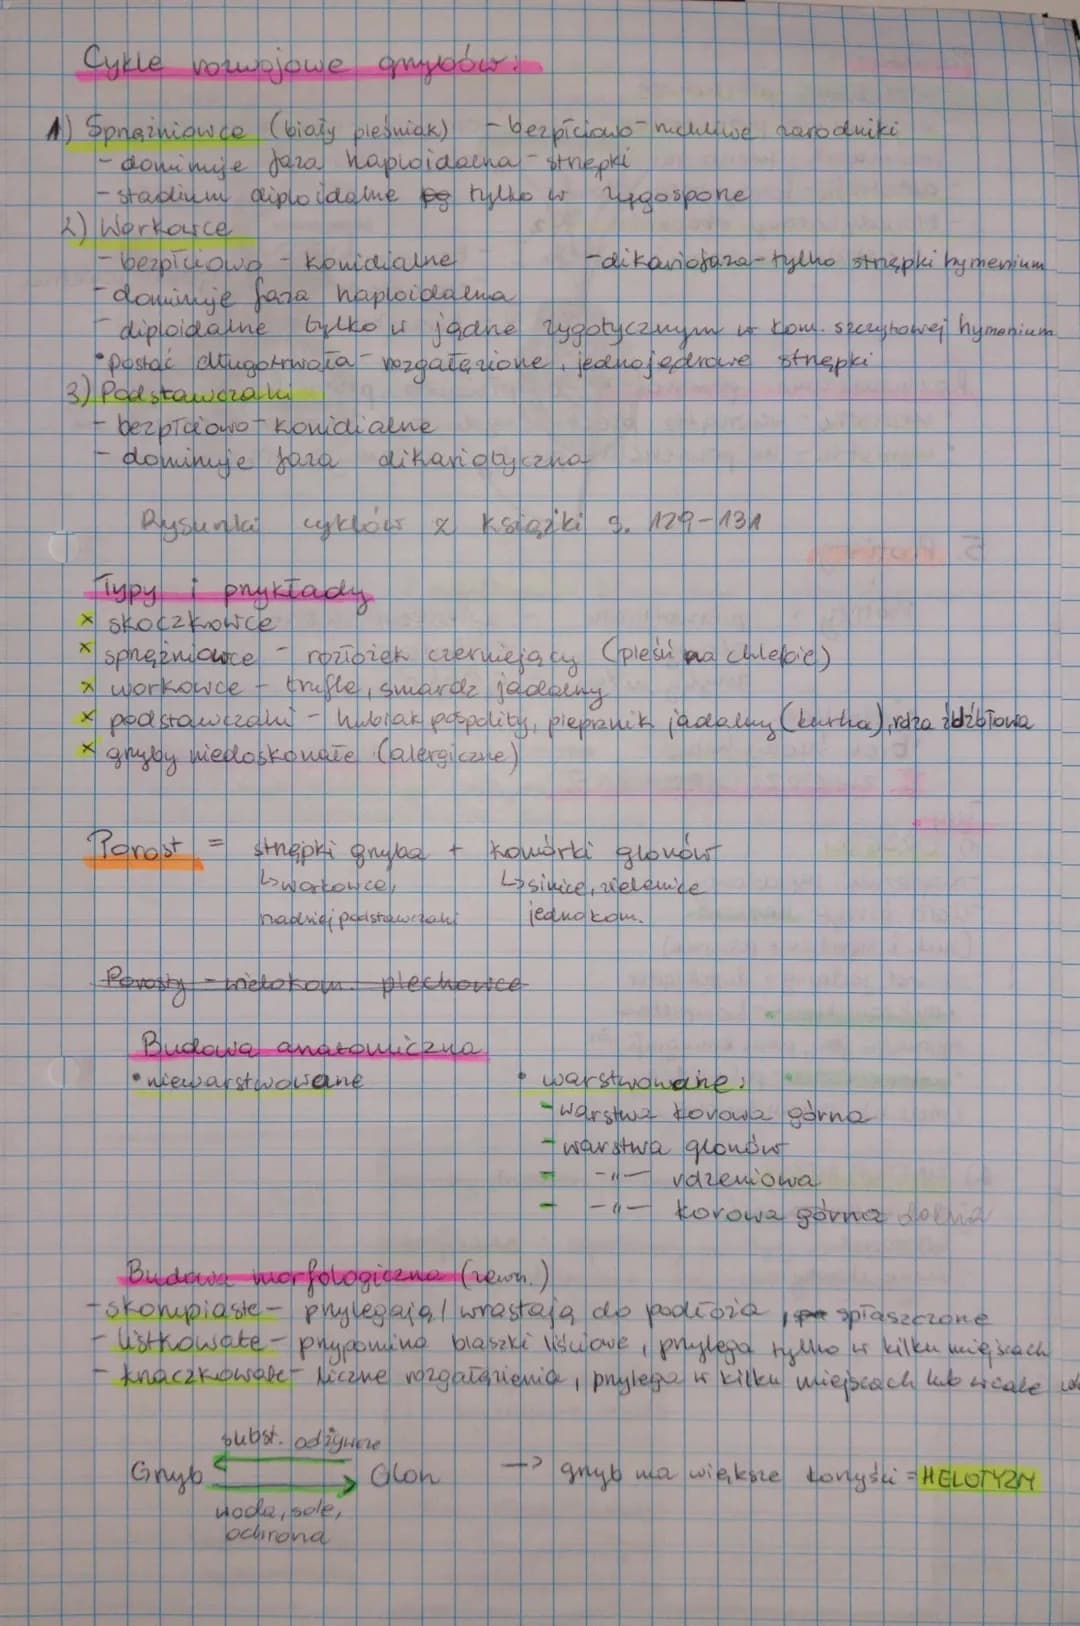 Cykle rozwojowe grzybów:
1) Sprzężniowce (biały pleśniak) - bezpłciowo - nieruchliwe zarodniki
- dominuje faza haploidalna - strzępki
- stadium diploidalne tylko w zygosporze
2) Workowce
- bezpłciowo - konidialne - dikariofaza - tylko strzępki hymenium
- dominuje faza haploidalna
- diploidalne tylko w jądrze zygotycznym w kom. szczytowej hymenium
• postać długotrwała - rozgałęzione, jednojądrowe strzępki
3) Podstawczaki
- bezpłciowo - konidialne
- dominuje faza dikariotyczna
Rysunki cyklów z książki s. 129-131
Typy i przykłady
x skoczkowce
x sprzężniowce - rozłożek czerniejący (pleśń na chlebie)
x workowce - trufle, smardz jadalny
x podstawczaki - hubiak pospolity, pieprznik jadalny (kurka), rdza źdźbłowa
x grzyby niedoskonałe (alergiczne)
Porost = strzępki grzyba + komórki glonów
↳ workowce, ↳ sinice, zielenice
rzadziej podstawczaki jednokom.
Porosty - wielokom. plechowce
Budowa anatomiczna
• niewarstwowane • warstwowane:
- warstwa korowa górna
- warstwa glonów
- -"- rdzeniowa
- -"- korowa górna dolna
Budowa morfologiczna (zewn.)
- skorupiaste - przylegają / wrastają do podłoża, spłaszczone
- listkowate - przypomina blaszki liściowe, przylega tylko w kilku miejscach
- krzaczkowate - liczne rozgałęzienia, przylega w kilku miejscach lub wcale
subst. odżywcze
Grzyb Glon -> grzyb ma większe korzyści = HELOTYZM
woda, sole,
ochrona